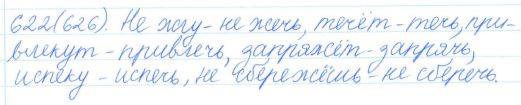 622(626). Не жгу - не жечь, течёт - течь, при-
влекут - привлечь, запряжёт - запрячь,
испеку - испечь, не сбережёшь - не сберечь.